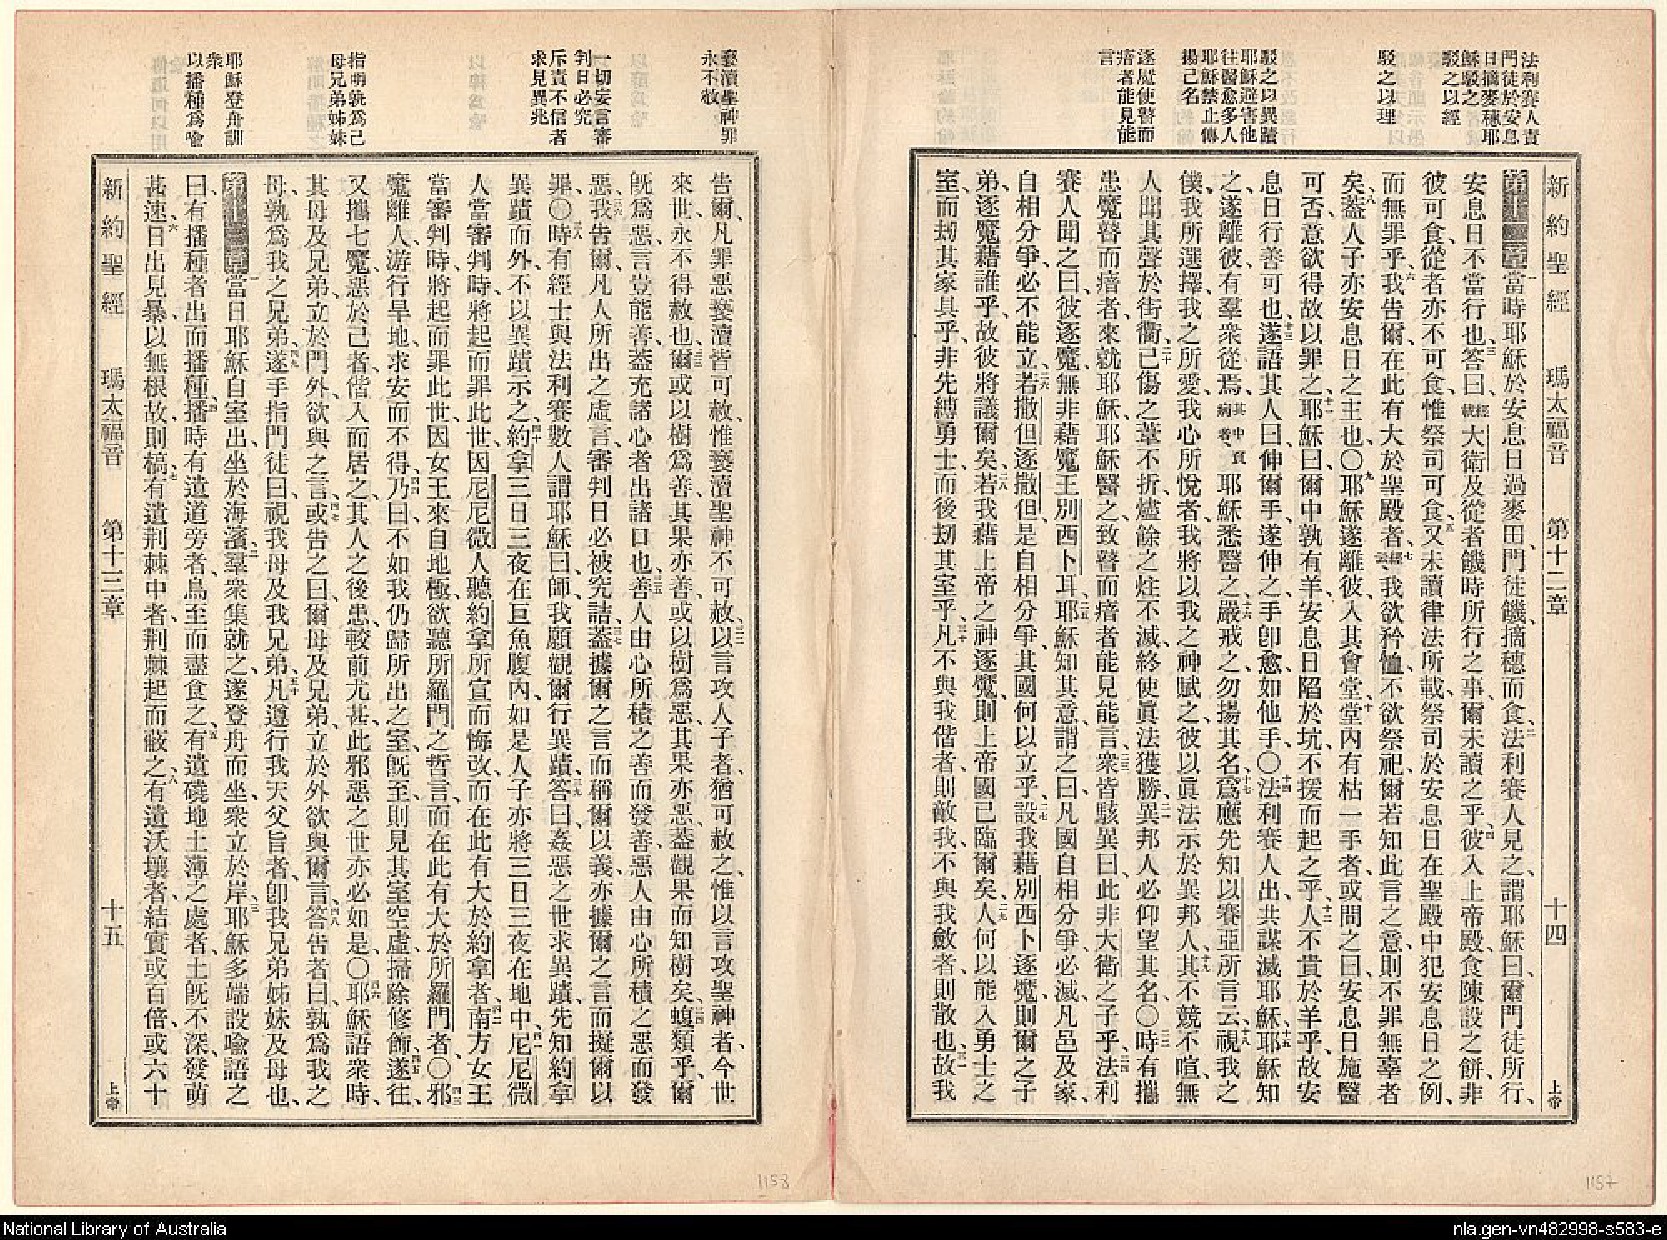 法利賽人責
門徒於安息
日摘麥穗耶
穌駁之
駁之以經
駁之以理
駁之以異蹟
耶穌避害他
往醫愈多人
耶穌禁止傳
揚己名
逐魔使瞽而
瘖者能見能
言
新約聖經 瑪太福音 第十二章 十四 上帝
第十二章 一當時耶穌於安息日過麥田、門徒饑、摘穗而食、二法利賽人見之、謂耶穌曰、爾門徒所行、
安息日不當行也、三答曰、經載大衛及從者饑時所行之事、爾未讀之乎、四彼入上帝殿、食陳設之餅、非
彼可食、從者亦不可食、惟祭司可食、五又未讀律法所載、祭司於安息日在聖殿中、犯安息日之例、
而無罪乎、六我告爾、在此有大於聖殿者、七經云我欲矜恤、不欲祭祀、爾若知此言之意、則不罪無辜者
矣、八蓋人子亦安息日之主也、〇九耶穌遂離彼、入其會堂、十堂內有枯一手者、或問之曰、安息日施醫
可否、意欲得故以罪之、十一耶穌曰、爾中孰有羊、安息日陷於坑、不援而起之乎、十二人不貴於羊乎、故安
息日行善可也、十三遂語其人曰、伸爾手、遂伸之、手卽愈如他手、〇十四法利賽人出、共謀滅耶穌、十五耶穌知
之、遂離彼、有羣衆從焉、其中負病者、耶穌悉醫之、十六嚴戒之、勿揚其名、十七爲應先知以賽亞所言云、十八視我之
僕、我所選擇、我之所愛、我心所悅者、我將以我之神賦之、彼以眞法示於異邦人、十九其不競不喧、無
人聞其聲於街衢、二十已傷之葦不折、燼餘之炷不滅、終使眞法獲勝、二一異邦人必仰望其名、〇二二時有攜
患魔瞽而瘖者、來就耶穌、耶穌醫之、致瞽而瘖者、能見能言、二三衆皆駭異曰、此非大衛之子乎、二四法利
賽人聞之曰、彼逐魔、無非藉魔王別西卜耳、二五耶穌知其意、謂之曰、凡國自相分爭必滅、凡邑及家、
自相分爭、必不能立、二六若撒但逐撒但、是自相分爭、其國何以立乎、二七設我藉別西卜逐魔、則爾之子
弟、逐魔藉誰乎、故彼將議爾矣、二八若我藉上帝之神逐魔、則上帝國已臨爾矣、二九人何以能入勇士之
室、而刼其家具乎、非先縛勇士、而後刼其室乎、三十凡不與我偕者、則敵我、不與我斂者、則散也、三一故我
1157
褻瀆聖神罪
永不赦
一切妄言審
判日必究
斥責不信者
求見異兆
指明孰爲己
母兄弟姊妹
耶穌登舟訓
衆
以播種爲喩
告爾、凡罪惡褻瀆皆可赦、惟褻瀆聖神不可赦、三二以言攻人子者、猶可赦之、惟以言攻聖神者、今世
來世、永不得赦也、三三爾或以樹爲善、其果亦善、或以樹爲惡、其果亦惡、蓋觀果而知樹矣、三四蝮類乎、爾
旣爲惡、言豈能善、蓋充諸心者出諸口也、三五善人由心所積之善而發善、惡人由心所積之惡而發
惡、三六我告爾、凡人所出之虛言、審判日必被究詰、三七蓋據爾之言而稱爾以義、亦據爾之言而擬爾以
罪、〇三八時有經士與法利賽數人、謂耶穌曰、師、我願觀爾行異蹟、三九答曰、姦惡之世求異蹟、先知約拿
異蹟而外、不以異蹟示之、四十約拿三日三夜在巨魚腹內、如是、人子亦將三日三夜在地中、四一尼尼微
人當審判時、將起而罪此世、因尼尼微人聽約拿所宣而悔改、而在此有大於約拿者、四二南方女王
當審判時、將起而罪此世、因女王來自地極、欲聽所羅門之哲言、而在此有大於所羅門者、〇四三邪
魔離人、游行旱地、求安而不得、四四乃曰、不如我仍歸所出之室、旣至、則見其室空虛、掃除修飾、四五遂往、
又攜七魔惡於己者、偕入而居之、其人之後患、較前尤甚、此邪惡之世亦必如是、〇四六耶穌語衆時、
其母及兄弟、立於門外、欲與之言、四七或告之曰、爾母及兄弟、立於外、欲與爾言、四八答告者曰、孰爲我之
母、孰爲我之兄弟、四九遂手指門徒曰、視我母及我兄弟、五十凡遵行我天父旨者、卽我兄弟姊妹及母也、
第十三章 一當日耶穌自室出、坐於海濱、二羣衆集就之、遂登舟而坐、衆立於岸、三耶穌多端設喩語之
曰、有播種者出而播種、四播時有遺道旁者、鳥至而盡食之、五有遺磽地土薄之處者、土旣不深、發萌
甚速、六日出見暴、以無根故、則槁、七有遺荆棘中者、荆棘起而蔽之、八有遺沃壤者、結實或百倍、或六十
新約聖經 瑪太福音 第十三章 十五 上帝
1158
National Library of Australia
nla.gen-vn482998-s583-e